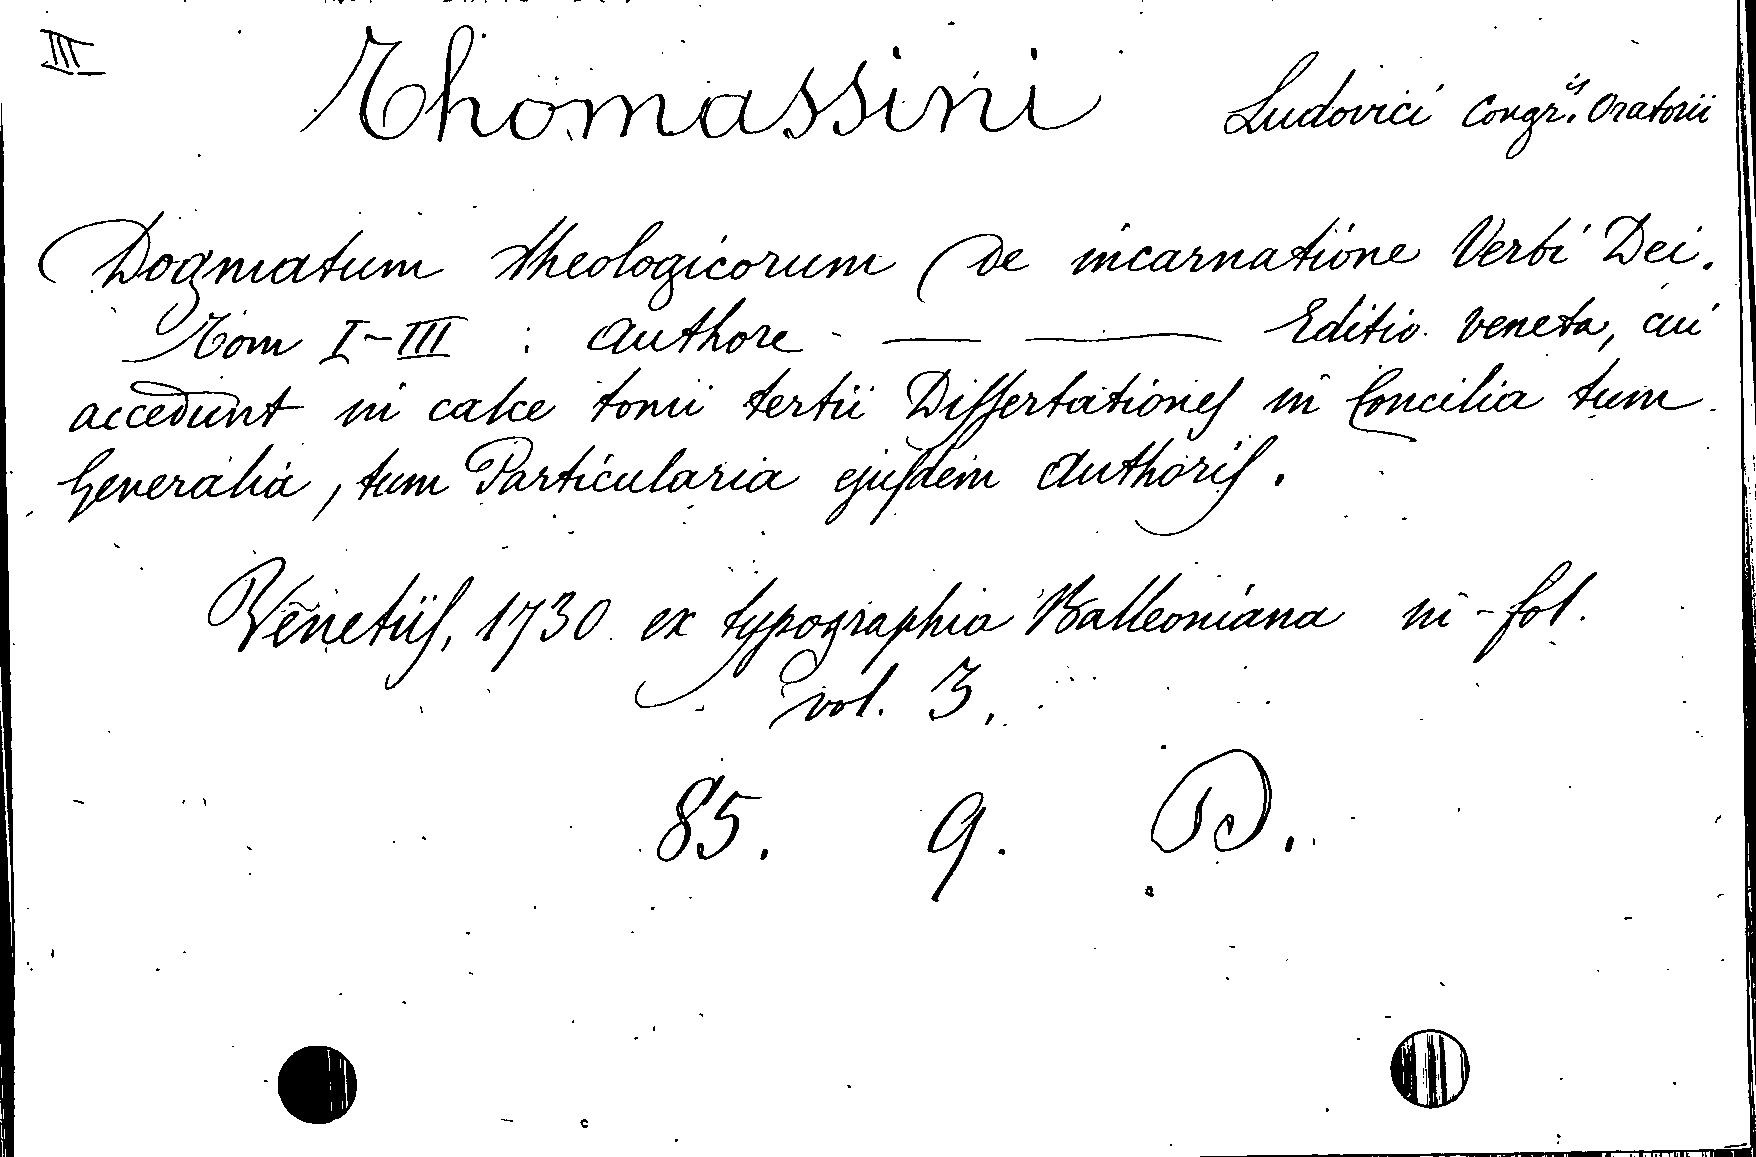 III
Thomassini Ludovici Congr.is Oratorii
Dogmatum theologicorum De incarnatione Verbi Dei.
Tom I-III : Authore — — Editio veneta, cui
accedunt in calce tomi tertii Dissertationes in Concilia tum
Generalia, tum Particularia ejusdem Authoris.
Venetiis, 1730 ex typographia Balleoniana in-fol.
vol. 3.
85. 9. D.